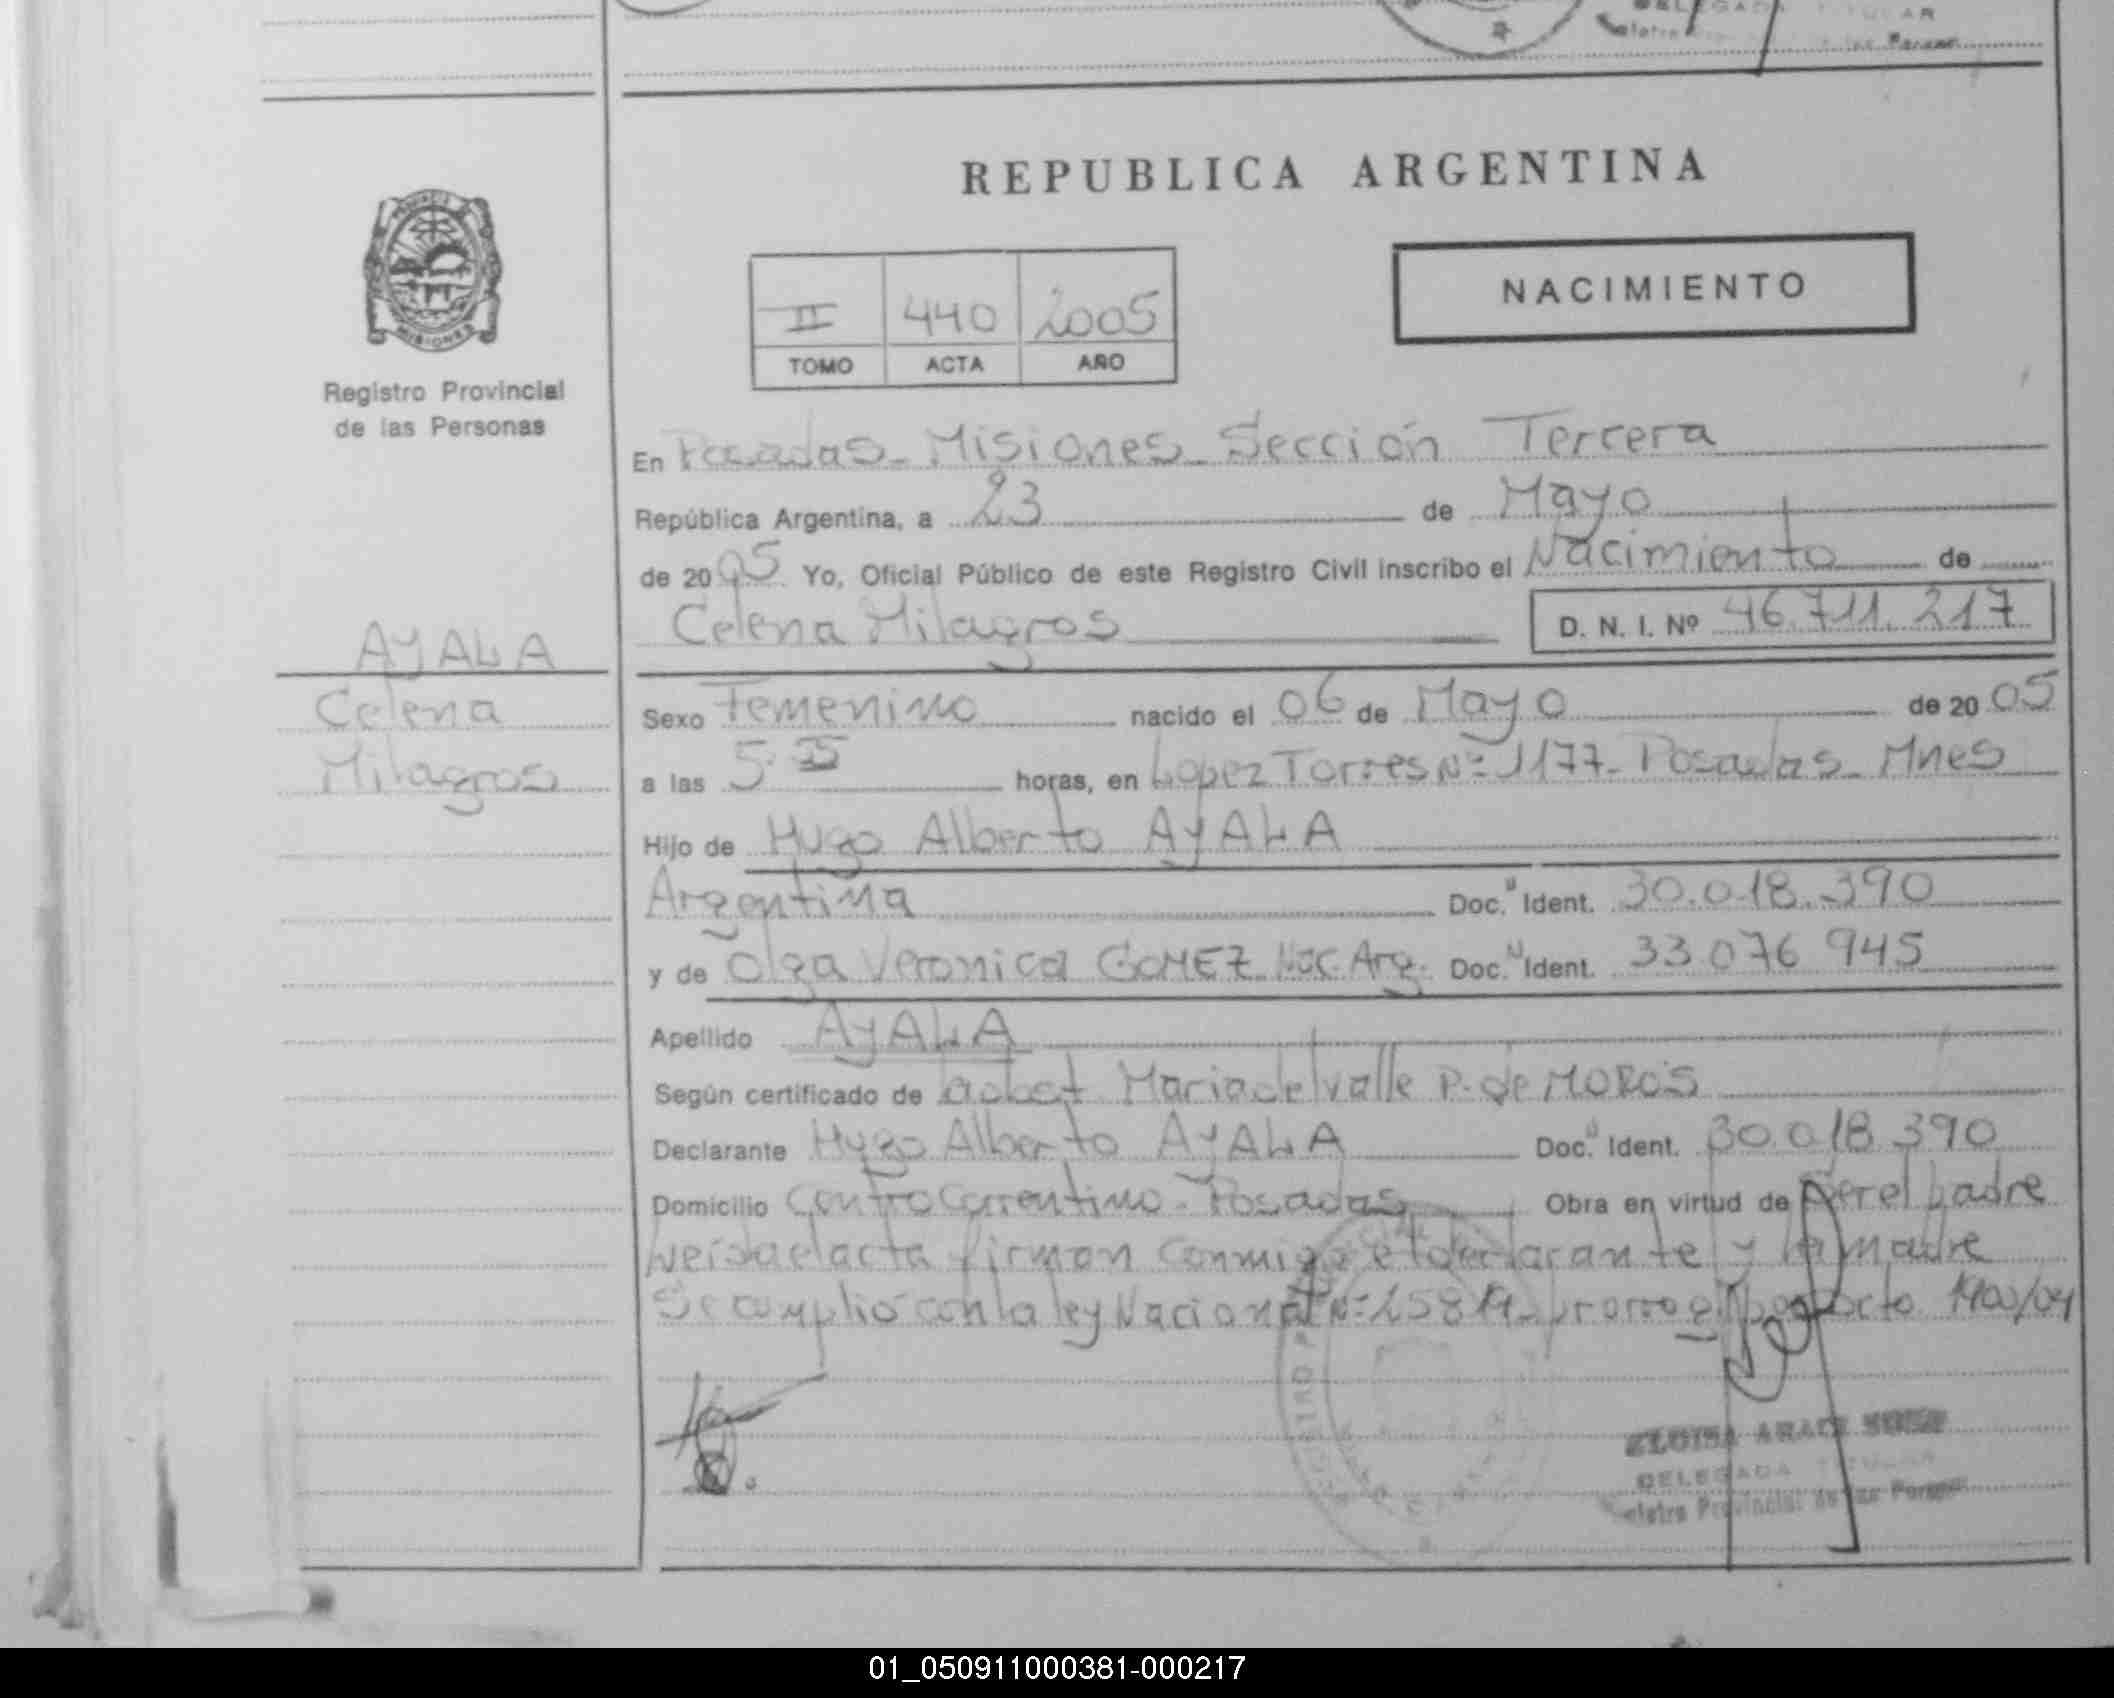 DELEGADA TITULAR
REPUBLICA ARGENTINA
PROVINCIA DE
MISIONES
Registro Provincial
de las Personas
NACIMIENTO
II 440 2005
TOMO ACTA AÑO
En Posadas - Misiones - Sección Tercera
República Argentina, a 23 de Mayo
de 2005 Yo, Oficial Público de este Registro Civil inscribo el Nacimiento de
Celena Milagros D. N. I. Nº 46.711.217
AYALA
Celena
Milagros
Sexo Femenino nacido el 06 de Mayo de 2005
a las 5:35 horas, en Lopez Torres Nº 1177 - Posadas - Mnes
Hijo de Hugo Alberto AYALA
Argentina Doc. Ident. 30.018.390
y de Olga Veronica GOMEZ Nac. Arg. Doc. Ident. 33 076 945
Apellido AYALA
Según certificado de Maria del Valle P. de MOROS
Declarante Hugo Alberto AYALA Doc. Ident. 30.018.390
Domicilio Centro Correntino - Posadas Obra en virtud de Ser el padre
Leida el acta firman conmigo el declarante y la madre
Se cumplió con la ley Nacional Nº 25819 - 1900/04
DELEGADA TITULAR
Provincial de las
01_050911000381-000217